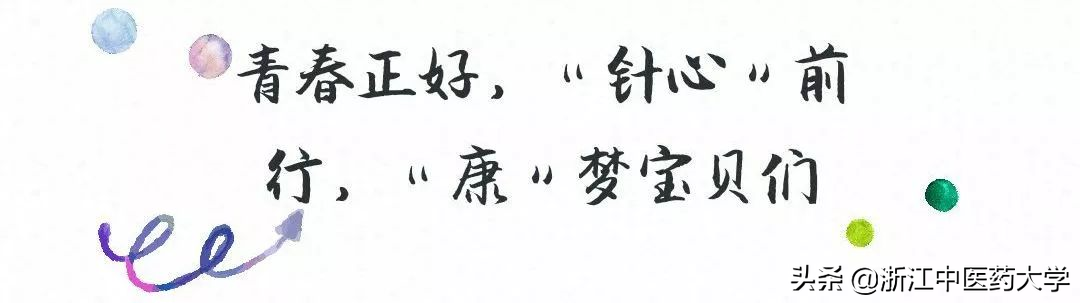 青春正好，“针心”前
行，“康”梦宝贝们
头条 @浙江中医药大学